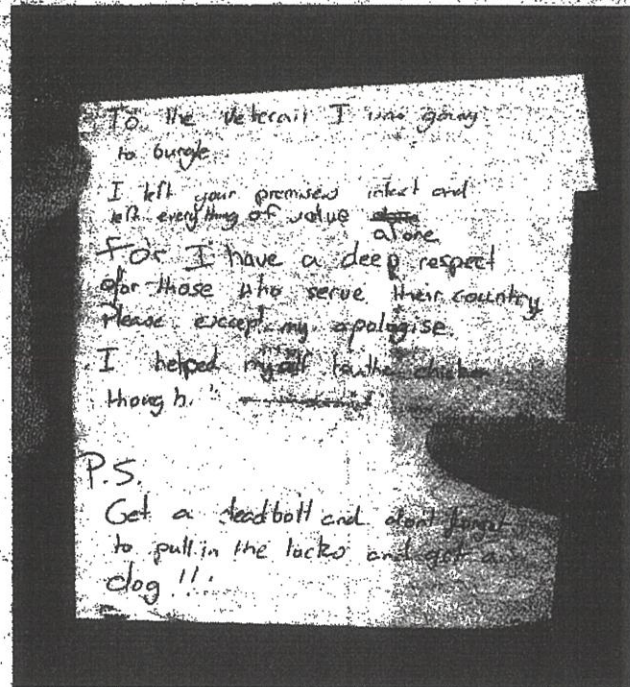 To the veteran I was going
to burgle
I left your premises intact and
left everything of value
alone
For I have a deep respect
for those who serve their country
Please except my apologise
I helped myself to the chicken
though.
P.S.
Get a deadbolt and don't forget
to pull in the locks and get a
dog !!!